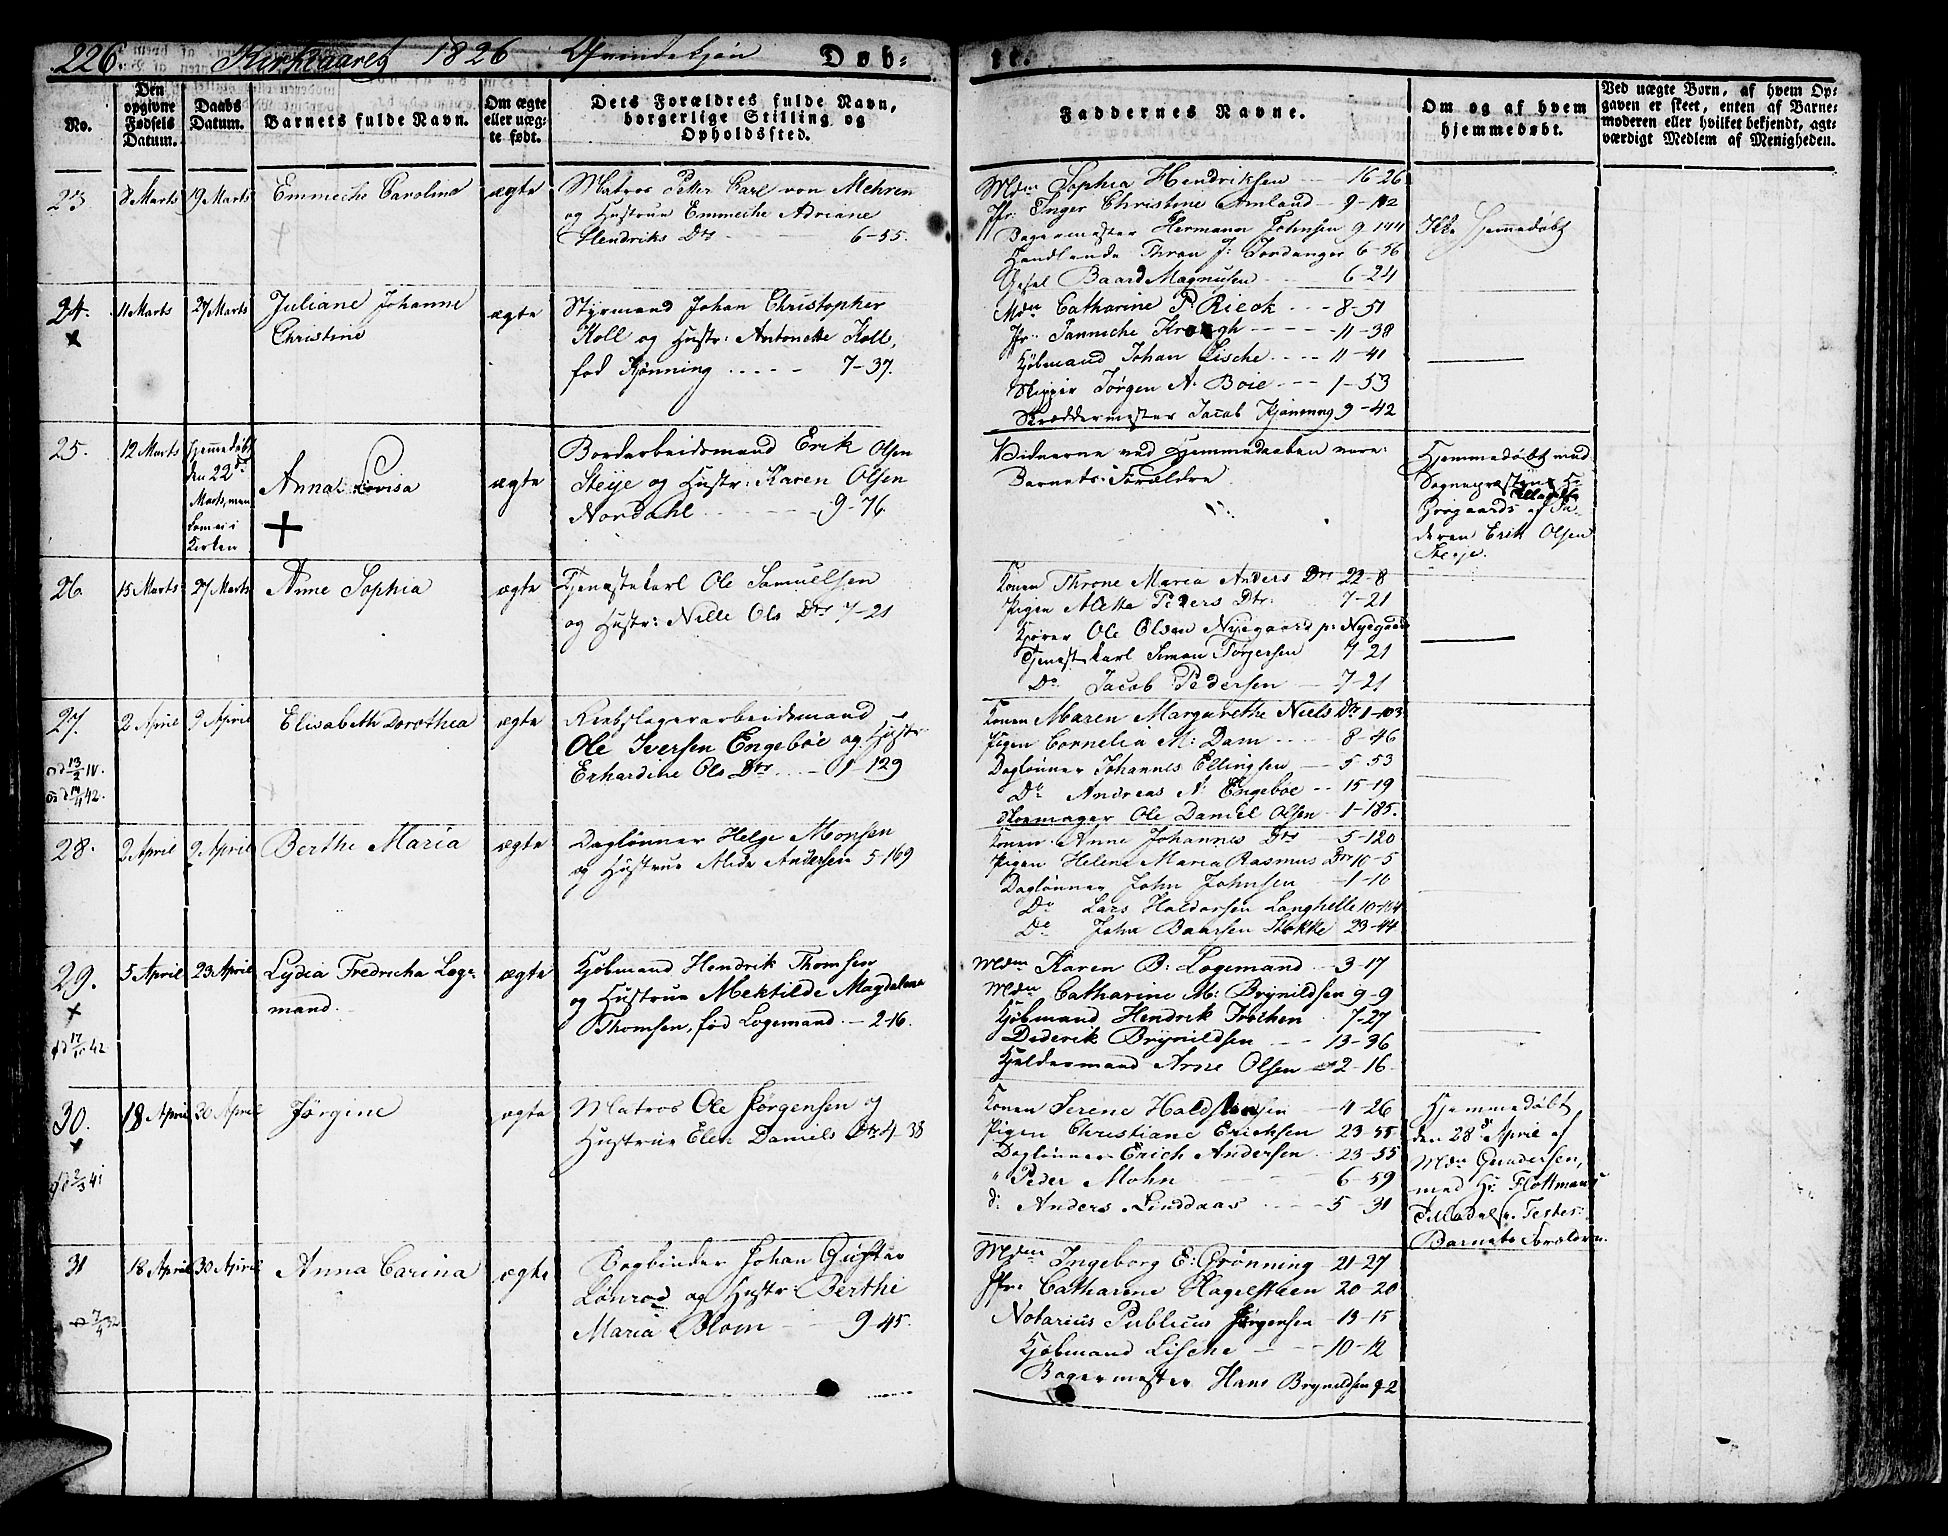 226. Kirkeaaret 1826 Qvindekjøn Døb-
te.
No.
Den opgivne Fødsels Datum.
Daabs Datum.
Barnets fulde Navn.
Om ægte eller uæg-
te født.
Dets Forældres fulde Navn,
borgerlige Stilling og
Opholdssted.
Faddernes Navne.
Om og af hvem
hjemmedøbt.
Ved uægte Børn, af hvem Op-
gaven er skeet, enten af Barne-
moderen eller hvilket bekjendt, agt-
værdigt Medlem af Menigheden.
23 8 Marts 19 Marts Emmeche Caroline ægte
Matros Peter Carl von Mehren
og Hustrue Emmeche Adriane
Hendriks Dtr 6-55.
Mdm Sophia Hendriksen 16-26
Jfr: Inger Christine Amland 9-112
Bagermester Hermann Johnsen 9-144
Handlende Thron J: Jordanger 6-56
Gesel Baard Magnusen 6-24
Ikke Hjemmedøbt
24. 11 Marts 27 Marts Juliane Johanne
Christine
ægte
Styrmand Johan Christopher
Koll og Hustr: Antonette Koll,
fød Kjønning 7-37.
Mdm Catharine P. Rieck 8-51
Jfr: Janniche Krogh 11-38
Kjøbmand Johan Lische 11-41
Skipper Jørgen A. Boie 1-53
Skræddermester Jacob Kjønning 9-42
25. 12 Marts Hjemmedøbt
den 22de
Marts, men
kom ei i
Kirken
Anna Lovisa
ægte
Bordarbeidsmand Erik Olsen
Steije og Hustr: Karen Olsen
Nordahl 9-76
Vidnerne ved Hjemmedaaben vare:
Barnets Forældre.
Hjemmedøbt med
Sognepræst Hr
Brogaards Tilladelse af Fa-
deren Erik Olsen
Steije.
26. 15 Marts 27 Marts Anne Sophia ægte
Tjenestekarl Ole Samuelsen
og Hustr: Nille Ols Dtr 7-21
Konen Throne Maria Anders Dtr 22-8
Pigen Alette Peders Dtr: 7-21
Kjører Ole Olsen Nyegaard p: Nyegaard
Tjenestekarl Simon Torgersen 7-21
Do Jacob Pedersen 7-21
27. 2 April 9 April Elisabeth Dorothea ægte
Reebslagerarbeidsmand
Ole Iversen Engebøe og Hustr
Erhardine Ols Dtr 1-129
Konen Maren Margarethe Niels Dtr 1-103
Pigen Cornelia M: Dam 8-46
Daglønner Johannes Ellingsen 5-53
Do Andreas N. Engebøe 15-19
Skomager Ole Daniel Olsen 1-185.
28. 2 April 9 April Berthe Maria ægte
Daglønner Helge Monsen
og Hustrue Alida Andersen 5-169
Konen Anne Johannes Dtr 5-120
Pigen Helene Maria Rasmus Dtr 10-5
Daglønner John Johnsen 1-10
Do Lars Haldorsen Langhelle 10-114
Do John Baarsen Stokke 23-44
29. 5 April 23 April Lydia Fredricha Loge-
mand.
ægte
Kjøbmand Hendrik Thomsen
og Hustrue Mektilde Magdalene
Thomsen, fød Logemand 2-16.
Mdm Karen B: Logemand 3-17
Mdm Catharine M: Brynildsen 9-9
Kjøbmand Hendrik Frøchen 7-27
Diderik Brynildsen 13-36
Kjeldermand Arne Olsen 2-16
30. 18 April 30 April Jørgine ægte
Matros Ole Jørgensen og
Hustrue Elen Daniels Dtr 4-38
Konen Serene Haldstensen 4-26
Pigen Christiane Ericksen 23-55
Daglønner Erich Andersen 23-55
" Peder Mohn 6-59
d: Anders Linddaas 5-31
Hjemmedøbt
den 28de April af
Mdm Gundersen,
med Hr: Flottmans
Tilladelse. Testes:
Barnets Forældre.
31 18 April 30 April Anna Carina ægte
Bogbinder Johan Gustav
Lønrod og Hustr: Berthe
Maria Blom 9-45.
Mdm Ingeborg E: Grønning 21-27
Jfr: Catharine Hagelsteen 20-20
Notarius Publicus Jørgensen 13-15
Kjøbmand Lische 10-12
Bagermester Hans Brynildsen 9-2